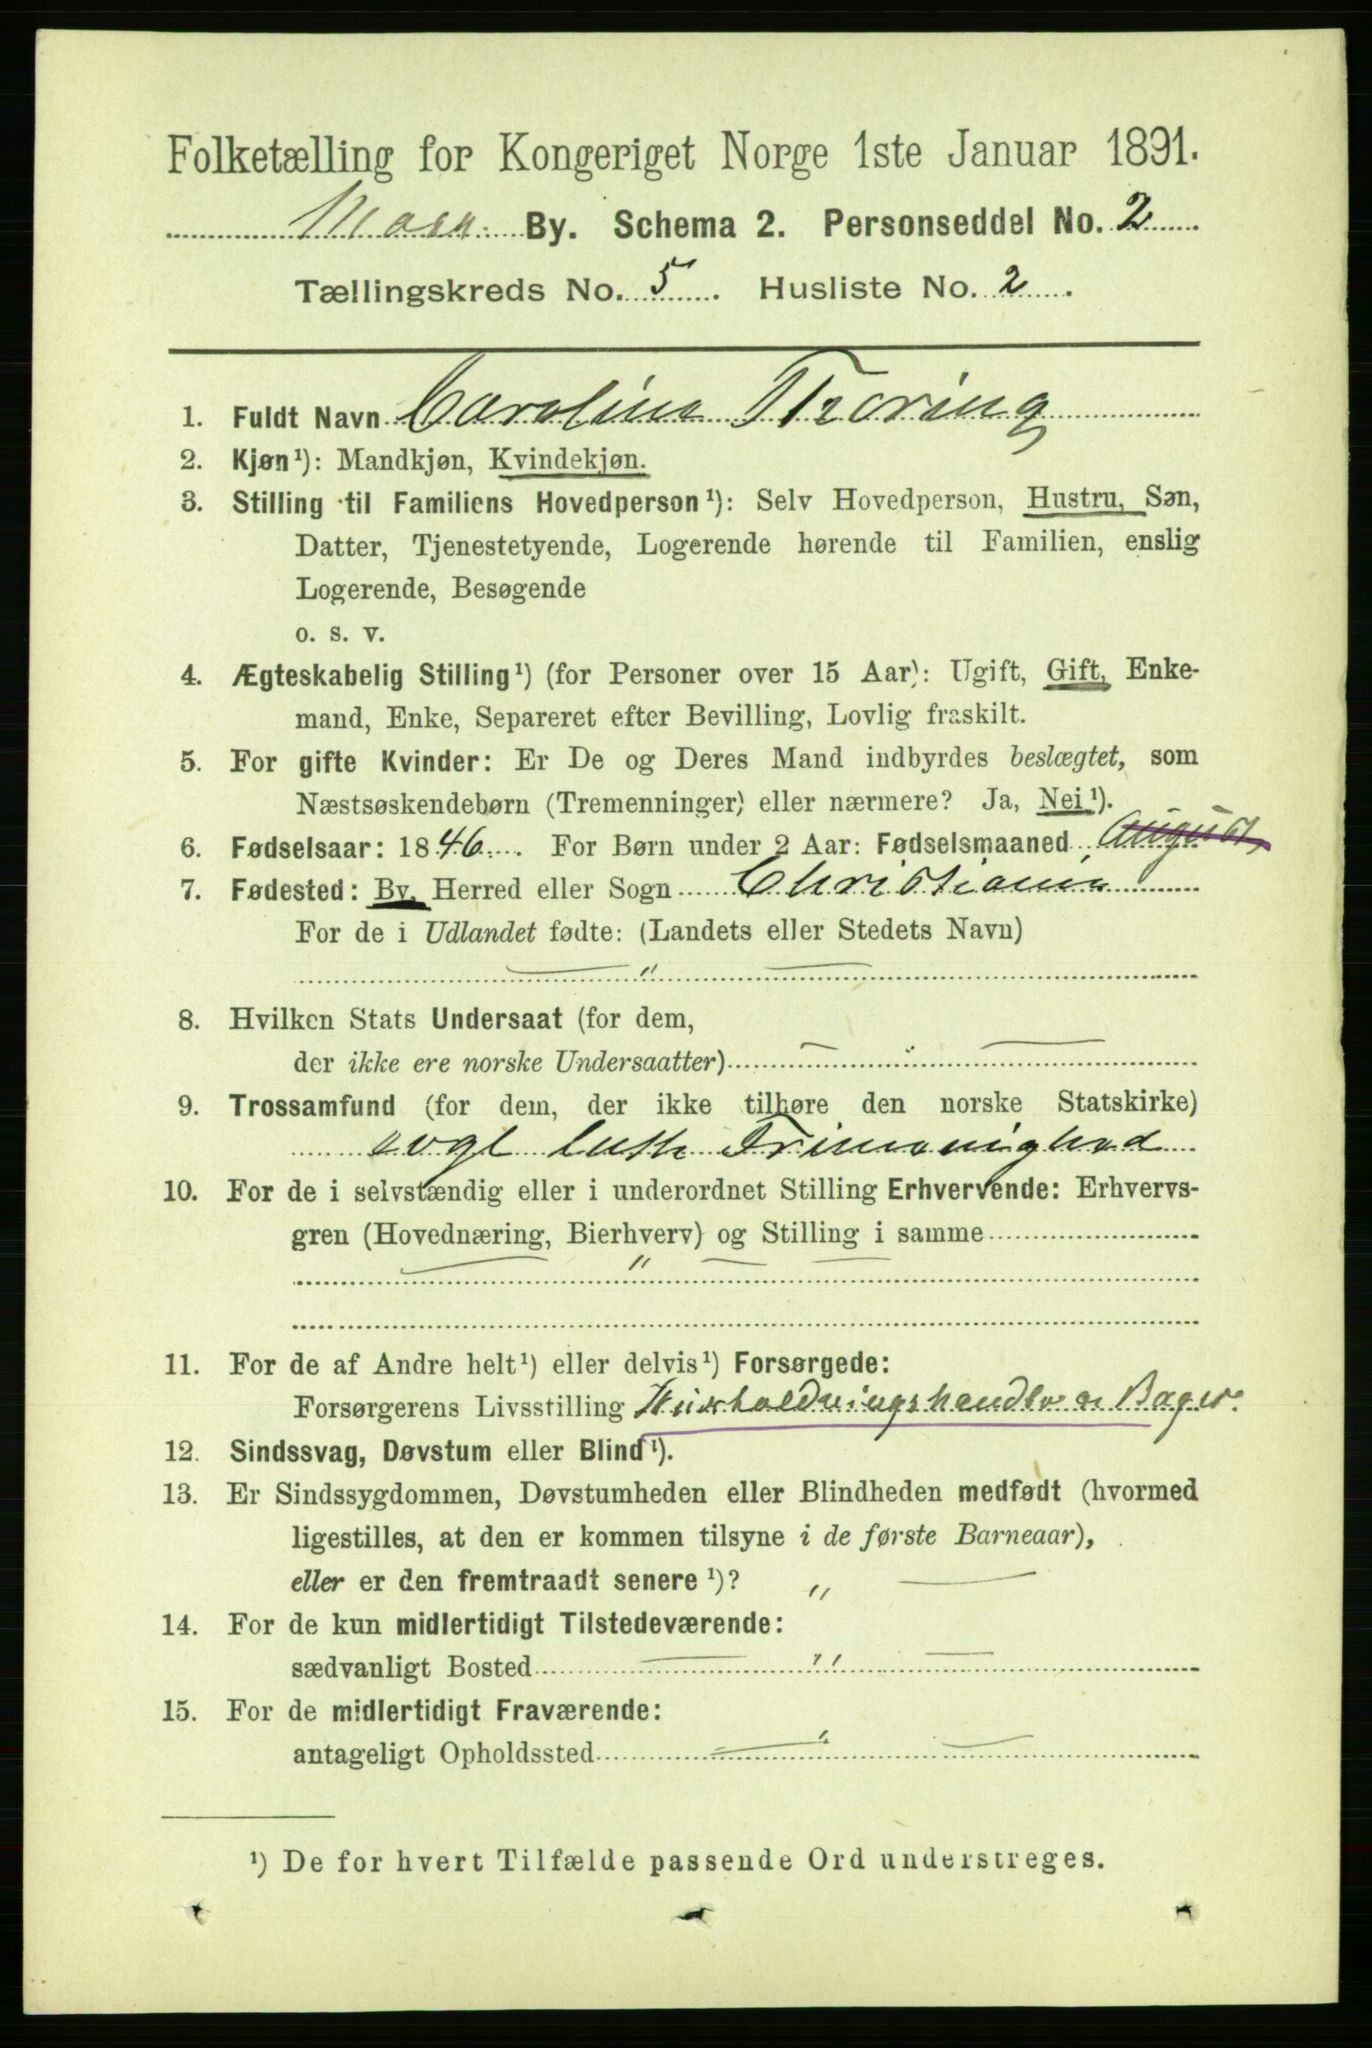 Folketælling for Kongeriget Norge 1ste Januar 1891.
Moss By. Schema 2. Personseddel No. 2
Tællingskreds No. 5. Husliste No. 2.
1. Fuldt Navn Caroline Thoring
2. Kjøn¹): Mandkjøn, Kvindekjøn.
3. Stilling til Familiens Hovedperson¹): Selv Hovedperson, Hustru, Søn,
Datter, Tjenestetyende, Logerende hørende til Familien, enslig
Logerende, Besøgende
o. s. v.
4. Ægteskabelig Stilling¹) (for Personer over 15 Aar): Ugift, Gift, Enke-
mand, Enke, Separeret efter Bevilling, Lovlig fraskilt.
5. For gifte Kvinder: Er De og Deres Mand indbyrdes beslægtet, som
Næstsøskendebørn (Tremenninger) eller nærmere? Ja, Nei¹).
6. Fødselsaar: 1846. For Børn under 2 Aar: Fødselsmaaned August,
7. Fødested: By, Herred eller Sogn Christiania
For de i Udlandet fødte: (Landets eller Stedets Navn)
— " —
8. Hvilken Stats Undersaat (for dem,
der ikke ere norske Undersaatter) — " —
9. Trossamfund (for dem, der ikke tilhøre den norske Statskirke)
evgl luth Frimenighed
10. For de i selvstændig eller i underordnet Stilling Erhvervende: Erhvervs-
gren (Hovednæring, Bierhverv) og Stilling i samme
— " — —
11. For de af Andre helt¹) eller delvis¹) Forsørgede:
Forsørgerens Livsstilling Husholdningshandler Bager
12. Sindssvag, Døvstum eller Blind¹).
13. Er Sindssygdommen, Døvstumheden eller Blindheden medfødt (hvormed
ligestilles, at den er kommen tilsyne i de første Barneaar),
eller er den fremtraadt senere¹)? " —
14. For de kun midlertidigt Tilstedeværende:
sædvanligt Bosted — " —
15. For de midlertidigt Fraværende:
antageligt Opholdssted — " —
¹) De for hvert Tilfælde passende Ord understreges.